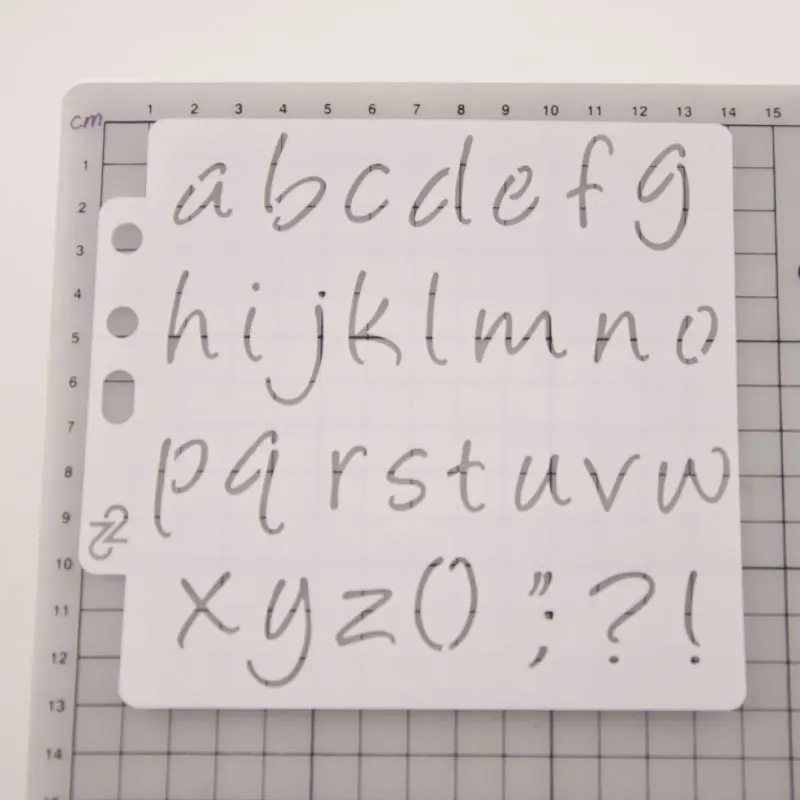 cm 1 2 3 4 5 6 7 8 9 10 11 12 13 14 15
1
2
3
4
5
6
7
8
9
10
11
12
13
14
a b c d e f g
h i j k l m n o
p q r s t u v w
x y z ( ) " ; ? !